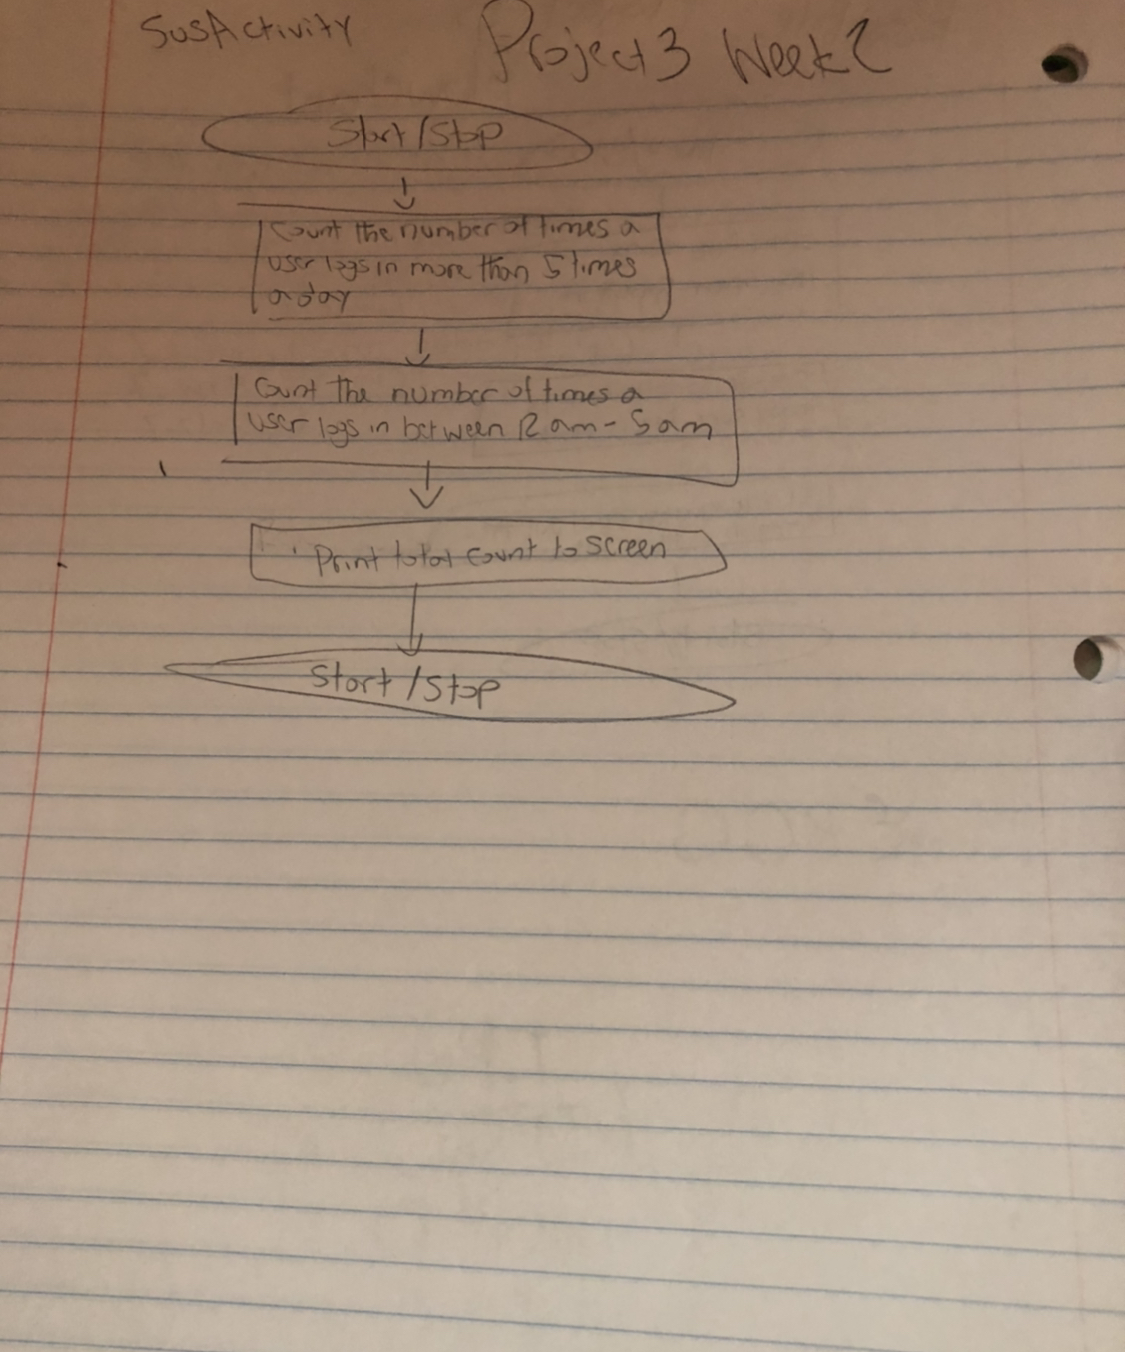 SusActivity
Project 3 Week 2
Start/Stop
Count the number of times a
user logs in more than 5 times
a day
Count The number of times a
user logs in between 12 am - 5 am
Print total count to screen
Start/Stop